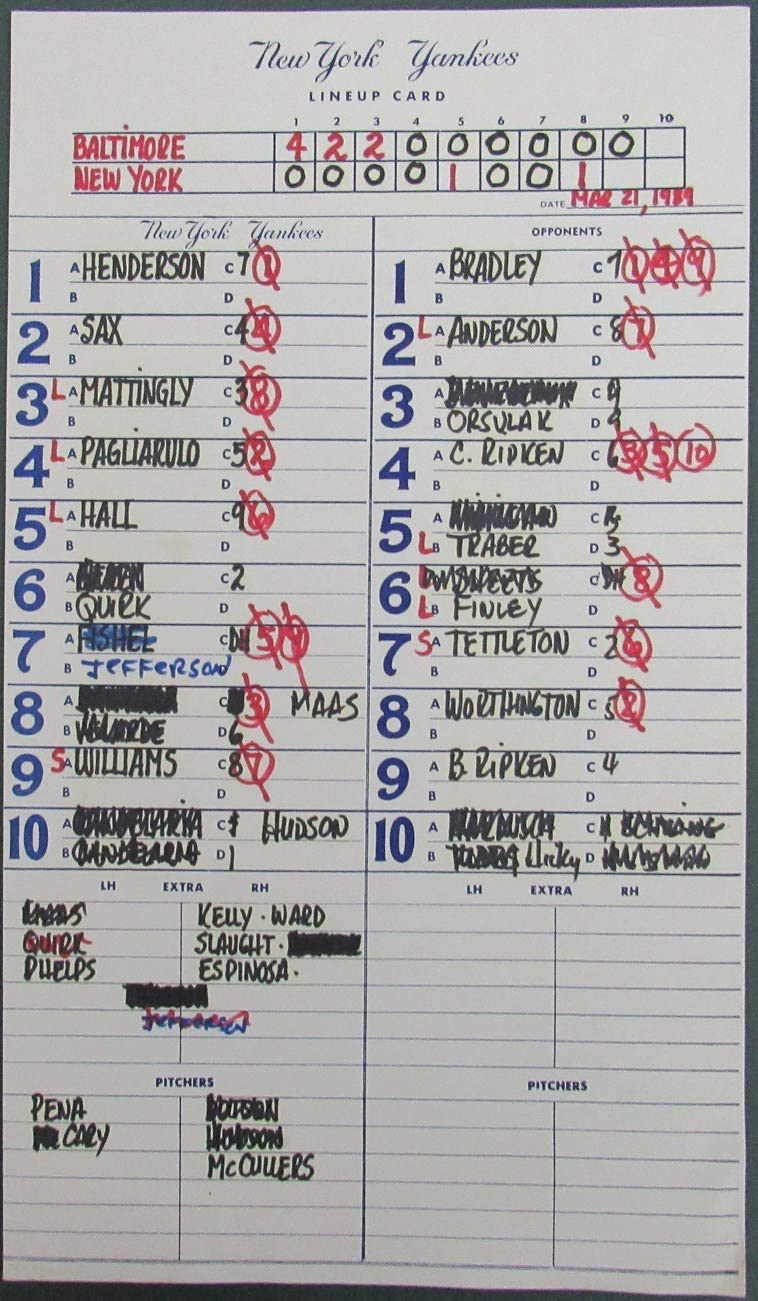 New York Yankees
LINEUP CARD
1 2 3 4 5 6 7 8 9 10
BALTIMORE 4 2 2 0 0 0 0 0 0
NEW YORK 0 0 0 0 1 0 0 1
DATE MAR 21, 1989
New York Yankees
1 A HENDERSON C 7 1
B D
2 A SAX C 4 4
B D
3 L A MATTINGLY C 3 8
B D
4 L A PAGLIARULO C 5 2
B D
5 L A HALL C 9 6
B D
6 A C 2
B QUIRK D
7 A FISHEL C DH 5 4
B JEFFERSON
8 A C 3 MAAS
B VELARDE D 6
9 S A WILLIAMS C 8 7
B D
10 A C HUDSON
B CANDELARIA D 1
LH EXTRA RH
KELLY · WARD
QUIRK SLAUGHT ·
PHELPS ESPINOSA ·
JEFFERSON
PITCHERS
PENA
CARY HUDSON
McCULLERS
OPPONENTS
1 A BRADLEY C 7 1 4 9
B D
2 L A ANDERSON C 8 7
B D
3 A C 9
B ORSULAK D 9
4 A C. RIPKEN C 6 3 5 10
B D
5 A C
L B TRABER D 3
6 L A SHEETS C DH 8
L B FINLEY D
7 S A TETTLETON C 2 6
B D
8 A WORTHINGTON C 5 2
B D
9 A B. RIPKEN C 4
B D
10 A C
B Hickey D
LH EXTRA RH
PITCHERS